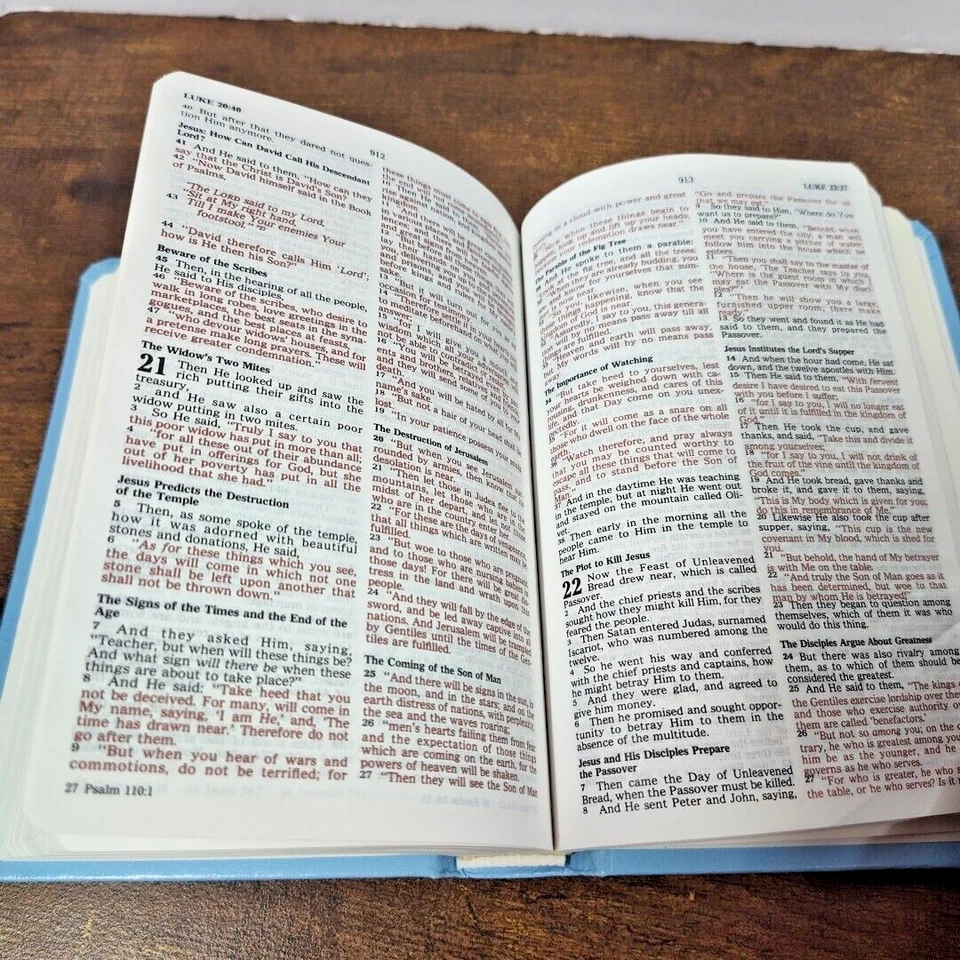 LUKE 20:40
912
40 But after that they dared not ques-
tion Him anymore.
Jesus: How Can David Call His Descendant
Lord?
41 And He said to them, "How can they
say that the Christ is David's Son?
42 "Now David himself said in the Book
of Psalms,
'The LORD said to my Lord,
"Sit at My right hand,
Till I make Your enemies Your
footstool." '27
44 "David therefore calls Him 'Lord';
how is He then his Son?"
Beware of the Scribes
45 Then, in the hearing of all the people,
He said to His disciples,
46 "Beware of the scribes, who desire to
walk in long robes, love greetings in the
marketplaces, the best seats in the syna-
gogues, and the best places at feasts,
47 "who devour widows' houses, and for
a pretense make long prayers. These will
receive greater condemnation."
The Widow's Two Mites
21 Then He looked up and saw the
rich putting their gifts into the
treasury,
2 and He saw also a certain poor
widow putting in two mites.
3 So He said, "Truly I say to you that
this poor widow has put in more than all;
4 "for all these out of their abundance
have put in offerings for God, but she
out of her poverty has put in all the
livelihood that she had."
Jesus Predicts the Destruction
of the Temple
5 Then, as some spoke of the temple,
how it was adorned with beautiful
stones and donations, He said,
6 "As for these things which you see,
the days will come in which not one
stone shall be left upon another that
shall not be thrown down."
The Signs of the Times and the End of the
Age
7 And they asked Him, saying,
"Teacher, but when will these things be?
And what sign will there be when these
things are about to take place?"
8 And He said: "Take heed that you
not be deceived. For many will come in
My name, saying, 'I am He,' and, 'The
time has drawn near.' Therefore do not
go after them.
9 "But when you hear of wars and
commotions, do not be terrified; for
27 Psalm 110:1
these things must
10 Then He said
kingdom
14 "Therefore settle
to meditate beforehand
15 "for I will give you
wisdom which
16 "You will be
ents and brothers, relatives
death.
17 "And you will be hated by all for
18 "But not a hair of your head shall
19 "In your patience possess your
The Destruction of Jerusalem
20 "But when you see Jerusalem
rounded by armies, then know that
21 "Then let those in Judea flee to the
mountains, let those who are in the
midst of her depart, and let not those
who are in the country enter her.
22 "For these are the days of vengeance,
that all things which are written may be
23 "But woe to those who are pregnant
and to those who are nursing babies in
those days! For there will be great dis-
tress in the land and wrath upon this
people.
24 "And they will fall by the edge of the
sword, and be led away captive into all
nations. And Jerusalem will be trampled
by Gentiles until the times of the Gen-
tiles are fulfilled.
The Coming of the Son of Man
25 "And there will be signs in the sun, in
the moon, and in the stars; and on the
earth distress of nations, with perplexity,
the sea and the waves roaring;
26 "men's hearts failing them from fear
and the expectation of those things
which are coming on the earth, for the
powers of heaven will be shaken.
27 "Then they will see the Son of Man
913
LUKE 22:27
in a cloud with power and great
when these things begin to
look up and lift up your heads,
redemption draws near."
The Parable of the Fig Tree
He spoke to them a parable:
the fig tree, and all the trees:
When they are already budding, you
for yourselves that sum-
is now near.
likewise, when you see
things happening, know that the
of God is near.
I say to you, this genera-
will by no means pass away till all
Heaven and earth will pass away,
but My words will by no means pass
away.
The Importance of Watching
"But take heed to yourselves, lest
your hearts be weighed down with ca-
rousing, drunkenness, and cares of this
life, and that Day come on you unex-
pectedly.
"For it will come as a snare on all
those who dwell on the face of the whole
"Watch therefore, and pray always
that you may be counted worthy to
escape all these things that will come to
pass, and to stand before the Son of
Man."
37 And in the daytime He was teaching
in the temple, but at night He went out
and stayed on the mountain called Oli-
38 Then early in the morning all the
people came to Him in the temple to
hear Him.
The Plot to Kill Jesus
22 Now the Feast of Unleavened
Bread drew near, which is called
Passover.
2 And the chief priests and the scribes
sought how they might kill Him, for they
feared the people.
3 Then Satan entered Judas, surnamed
Iscariot, who was numbered among the
twelve.
4 So he went his way and conferred
with the chief priests and captains, how
he might betray Him to them.
5 And they were glad, and agreed to
give him money.
6 Then he promised and sought oppor-
tunity to betray Him to them in the
absence of the multitude.
Jesus and His Disciples Prepare
the Passover
7 Then came the Day of Unleavened
Bread, when the Passover must be killed.
8 And He sent Peter and John, saying,
"Go and prepare the Passover for us,
that we may eat."
9 So they said to Him, "Where do You
want us to prepare?"
10 And He said to them, "Behold, when
you have entered the city, a man will
meet you carrying a pitcher of water;
follow him into the house which he
enters.
11 "Then you shall say to the master of
the house, 'The Teacher says to you,
"Where is the guest room in which I
may eat the Passover with My disci-
ples?"'
12 "Then he will show you a large,
furnished upper room; there make
ready."
13 So they went and found it as He had
said to them, and they prepared the
Passover.
Jesus Institutes the Lord's Supper
14 And when the hour had come, He sat
down, and the twelve apostles with Him.
15 Then He said to them, "With fervent
desire I have desired to eat this Passover
with you before I suffer;
16 "for I say to you, I will no longer eat
of it until it is fulfilled in the kingdom of
God."
17 Then He took the cup, and gave
thanks, and said, "Take this and divide it
among yourselves;
18 "for I say to you, I will not drink of
the fruit of the vine until the kingdom of
God comes."
19 And He took bread, gave thanks and
broke it, and gave it to them, saying,
"This is My body which is given for you;
do this in remembrance of Me."
20 Likewise He also took the cup after
supper, saying, "This cup is the new
covenant in My blood, which is shed for
you.
21 "But behold, the hand of My betrayer
is with Me on the table.
22 "And truly the Son of Man goes as it
has been determined, but woe to that
man by whom He is betrayed!"
23 Then they began to question among
themselves, which of them it was who
would do this thing.
The Disciples Argue About Greatness
24 But there was also rivalry among
them, as to which of them should be
considered the greatest.
25 And He said to them, "The kings
the Gentiles exercise lordship over the
and those who exercise authority o
them are called 'benefactors.'
26 "But not so among you; on the c
trary, he who is greatest among you
him be as the younger, and he
governs as he who serves.
27 "For who is greater, he who s
the table, or he who serves? Is it